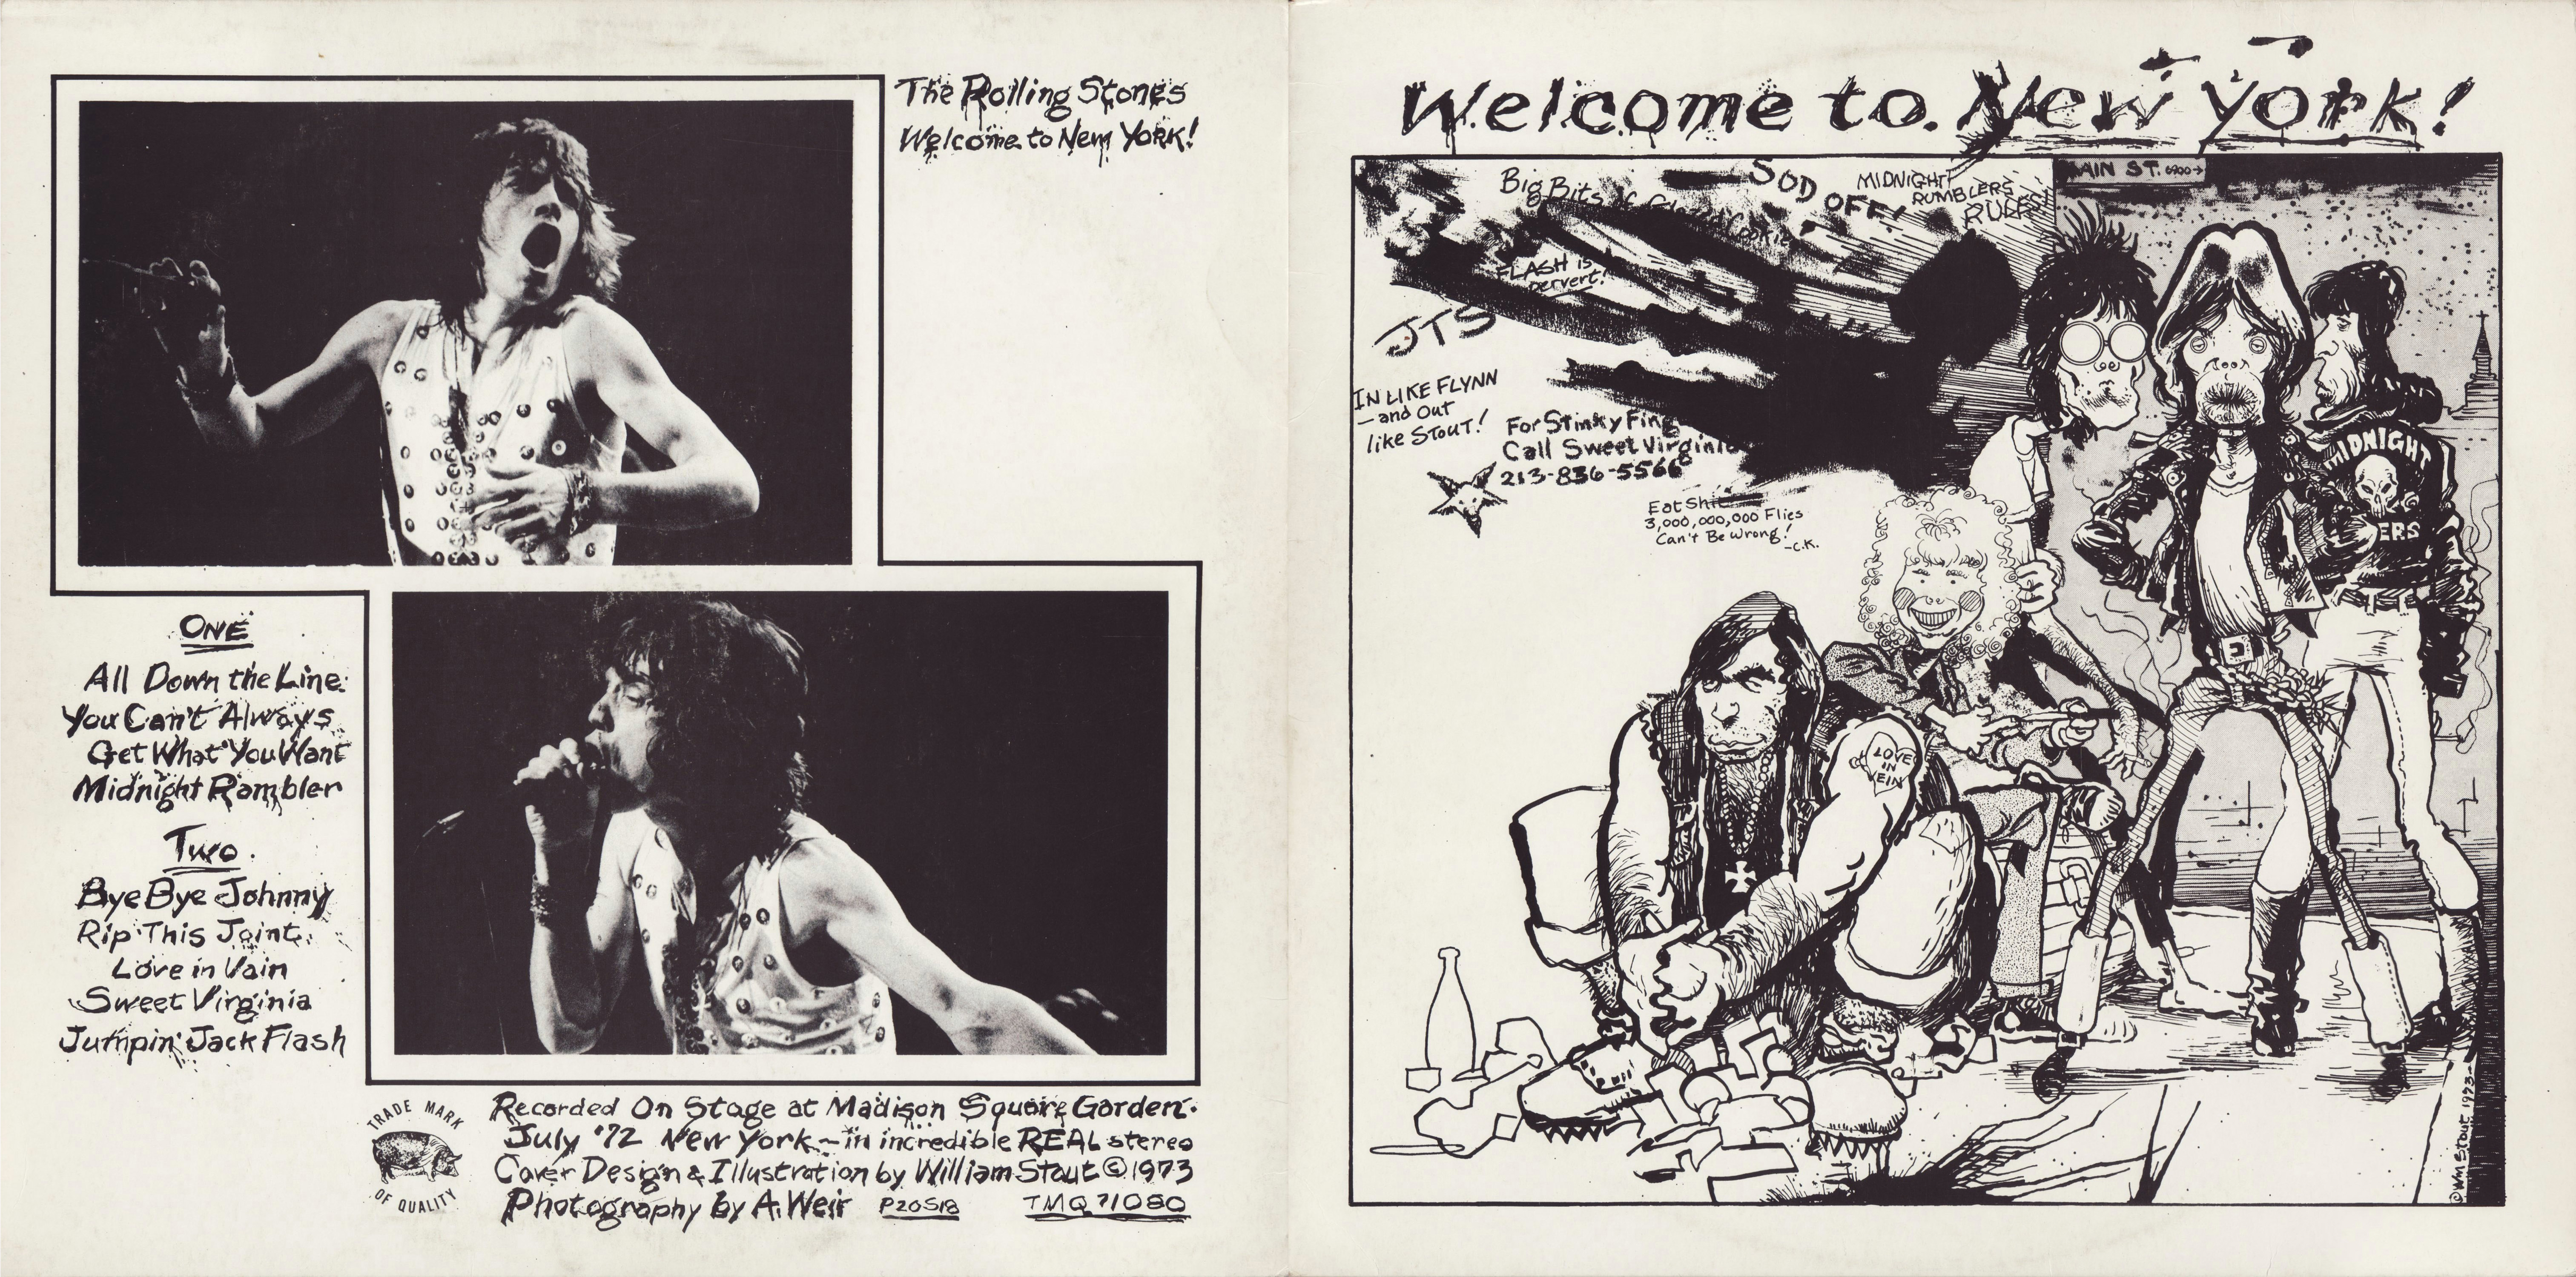 The Rolling Stones
Welcome to New York!
ONE
All Down the Line
You Can't Always
Get What You Want
Midnight Rambler
Two
Bye Bye Johnny
Rip This Joint
Love in Vain
Sweet Virginia
Jumpin' Jack Flash
TRADE MARK
OF QUALITY
Recorded On Stage at Madison Square Garden.
July '72 New York - in incredible REAL stereo
Cover Design & Illustration by William Stout © 1973
Photography by A. Weir P20518 TMQ 71080
Welcome to New York!
Big Bits
SOD OFF!
MIDNIGHT
RUMBLERS
RULES!
MAIN ST. 6900→
FLASH is
pervert!
JTS
IN LIKE FLYNN
-and Out
like STOUT!
For Stinky Fing
Call Sweet Virginia
213-836-5566
Eat Shit
3,000,000,000 Flies
Can't Be Wrong!
-C.K.
MIDNIGHT
ERS
LOVE
IN
EIN
© Wm Stout 1973-